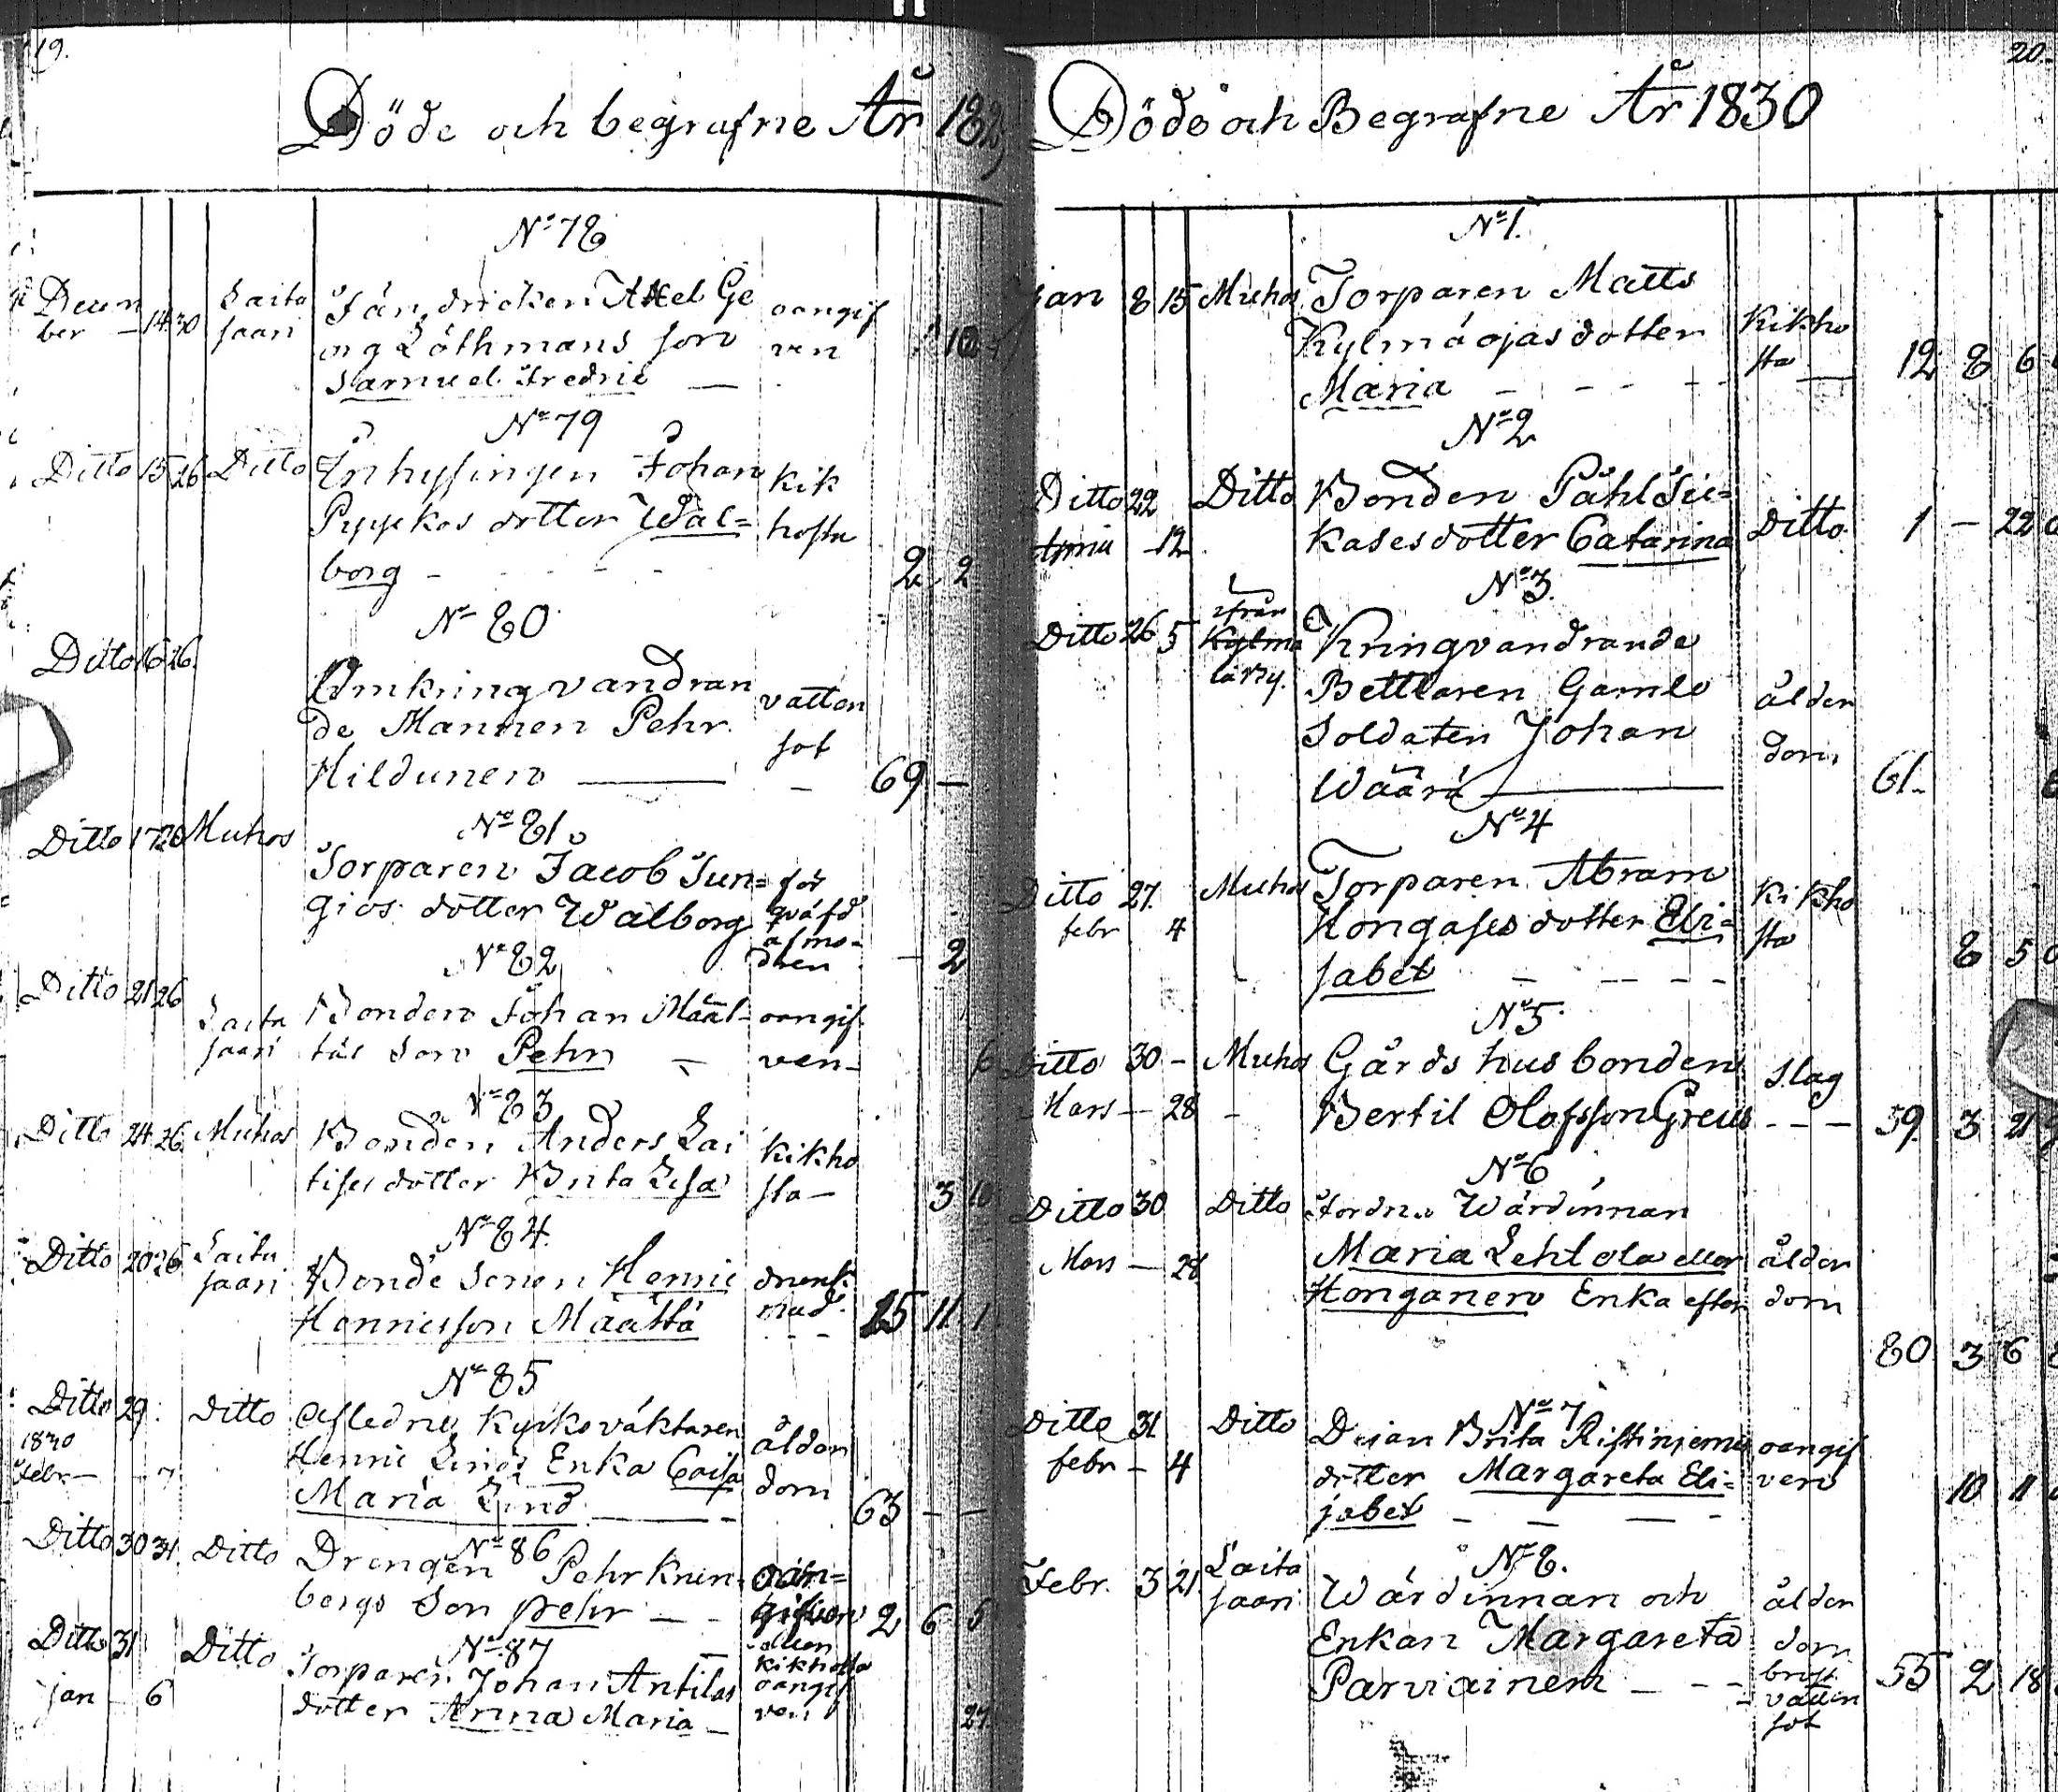 19.
Döde och begrafne År 1829
N:o 78
Decem
ber 14 30 Laita
saari
Axel Ge
org Löthmans son
Samuel Fredric
oangif
ven
N:o 79
Ditto 15 26 Ditto
Inhysingen Johan
Pyykkos dotter Wal=
borg
kik
hosta
2 2
N:o 80
Ditto 16 26
Omkring vandran
de Mannen Pehr
Hildunen
vatten
sot
69 —
N:o 81
Ditto 17 26 Muhos
Torparen Jacob Jun=
gios dotter Walborg
för
qväfd
af mo-
dren
— 2
N:o 82
Ditto 21 26 Laita
saari
Bonden Johan Määt-
täs son Pehr
oangif
ven
N:o 83
Ditto 24 26 Muhos
Bonden Anders Lai
tises dotter Brita Lisa
kikho
sta
3 10
N:o 84
Ditto 20 26 Laita
saari
Bonde sonen Henric
Henricsson Määttä
drunk
nad
15 11 1
N:o 85
Ditto 29 Ditto
1830
Febr 7
Afledne Kyrkoväktaren
Henric Linds Enka Caisa
Maria Lind
ålder
dom
63 — —
N:o 86
Ditto 30 31 Ditto
Drengen Pehr
bergs Son pehr
2 6 5
N:o 87
Ditto 31 Ditto
jan 6
Torparen Johan Antilas
dotter Anna Maria
kikhosta
oangif
ven
27
20.
Döde och Begrafne År 1830
N:o 1.
jan 8 15 Muhos
Torparen Matts
Kylmäojas dotter
Maria
Kikho
sta
12 8 6
N:o 2
Ditto 22 Ditto
12
Bonden Påhl
kases dotter Catarina
Ditto
1 — 22
N:o 3.
Ditto 26 5 ifrån
Kylma
Kringvandrande
Bettlaren Gamle
Soldaten Johan
Wäärä
ålder
dom
61
N:o 4
Ditto 27 Muhos
febr 4
Torparen Abram
Hongases dotter Eli=
sabet
Kikho
sta
8 5
N:o 5
Ditto 30 — Muhos
Mars — 28
Gårds husbonden
Bertil Olofsson Greus
Slag
59 3 21
N:o 6
Ditto 30 Ditto
Mars — 28
Fordna Wärdinnan
Maria Lehtola eller
Honganen Enka efter
ålder
dom
80 3 6
N:o 7
Ditto 31 Ditto
febr — 4
Brita
dotter Margareta Eli=
sabet
oangif
ven
10 11
N:o 8.
Febr. 3 21 Laita
saari
Wärdinnan och
Enkan Margareta
Parviainen
ålder
dom
bröst
vatten
sot
55 2 18